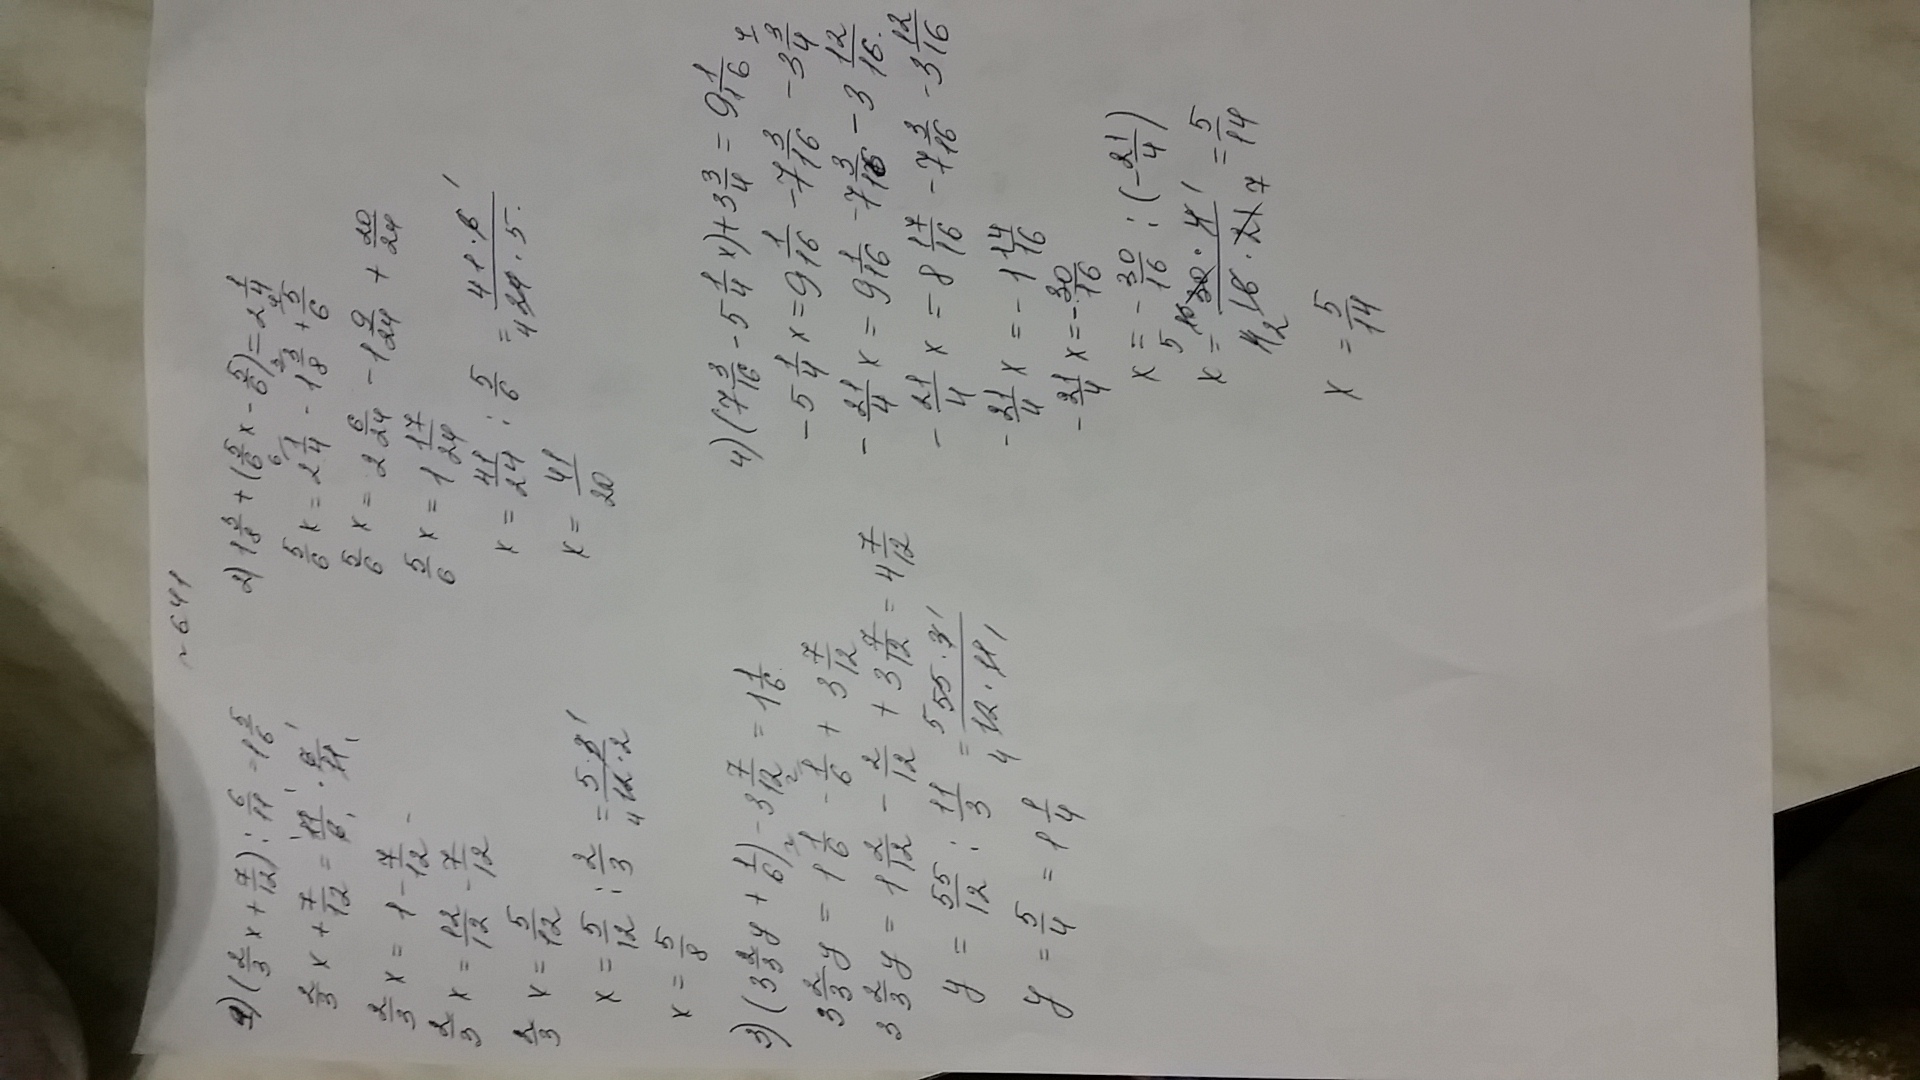 № 641
1) (2/3 x + 7/12) : 6/11 = 1 5/6
2/3 x + 7/12 = 11/6 · 6/11
2/3 x = 1 - 7/12 -
2/3 x = 12/12 - 7/12
2/3 x = 5/12
x = 5/12 : 2/3 = 5·3/12·2
x = 5/8
2) 1 3/8 + (5/6 x - 5/6) = 2 1/4
5/6 x = 2 1/4 - 1 3/8 + 5/6
5/6 x = 2 6/24 - 1 9/24 + 20/24
5/6 x = 1 17/24
x = 41/24 : 5/6 = 41·6/24·5.
x = 41/20
3) (3 2/3 y + 1/6) - 3 7/12 = 1 1/6.
3 2/3 y = 1 1/6 - 1/6 + 3 7/12
3 2/3 y = 1 2/12 - 2/12 + 3 7/12 = 4 7/12
y = 55/12 : 11/3 = 55·3/12·11
y = 5/4 = 1 1/4
4) (7 3/16 - 5 1/4 x) + 3 3/4 = 9 1/16
- 5 1/4 x = 9 1/16 - 7 3/16 - 3 3/4
- 21/4 x = 9 1/16 - 7 3/16 - 3 12/16.
- 21/4 x = 8 17/16 - 7 3/16 - 3 12/16
- 21/4 x = - 1 14/16
- 21/4 x = - 30/16
x = - 30/16 : (- 21/4)
x = 30·4/16·21 = 5/14
x = 5/14